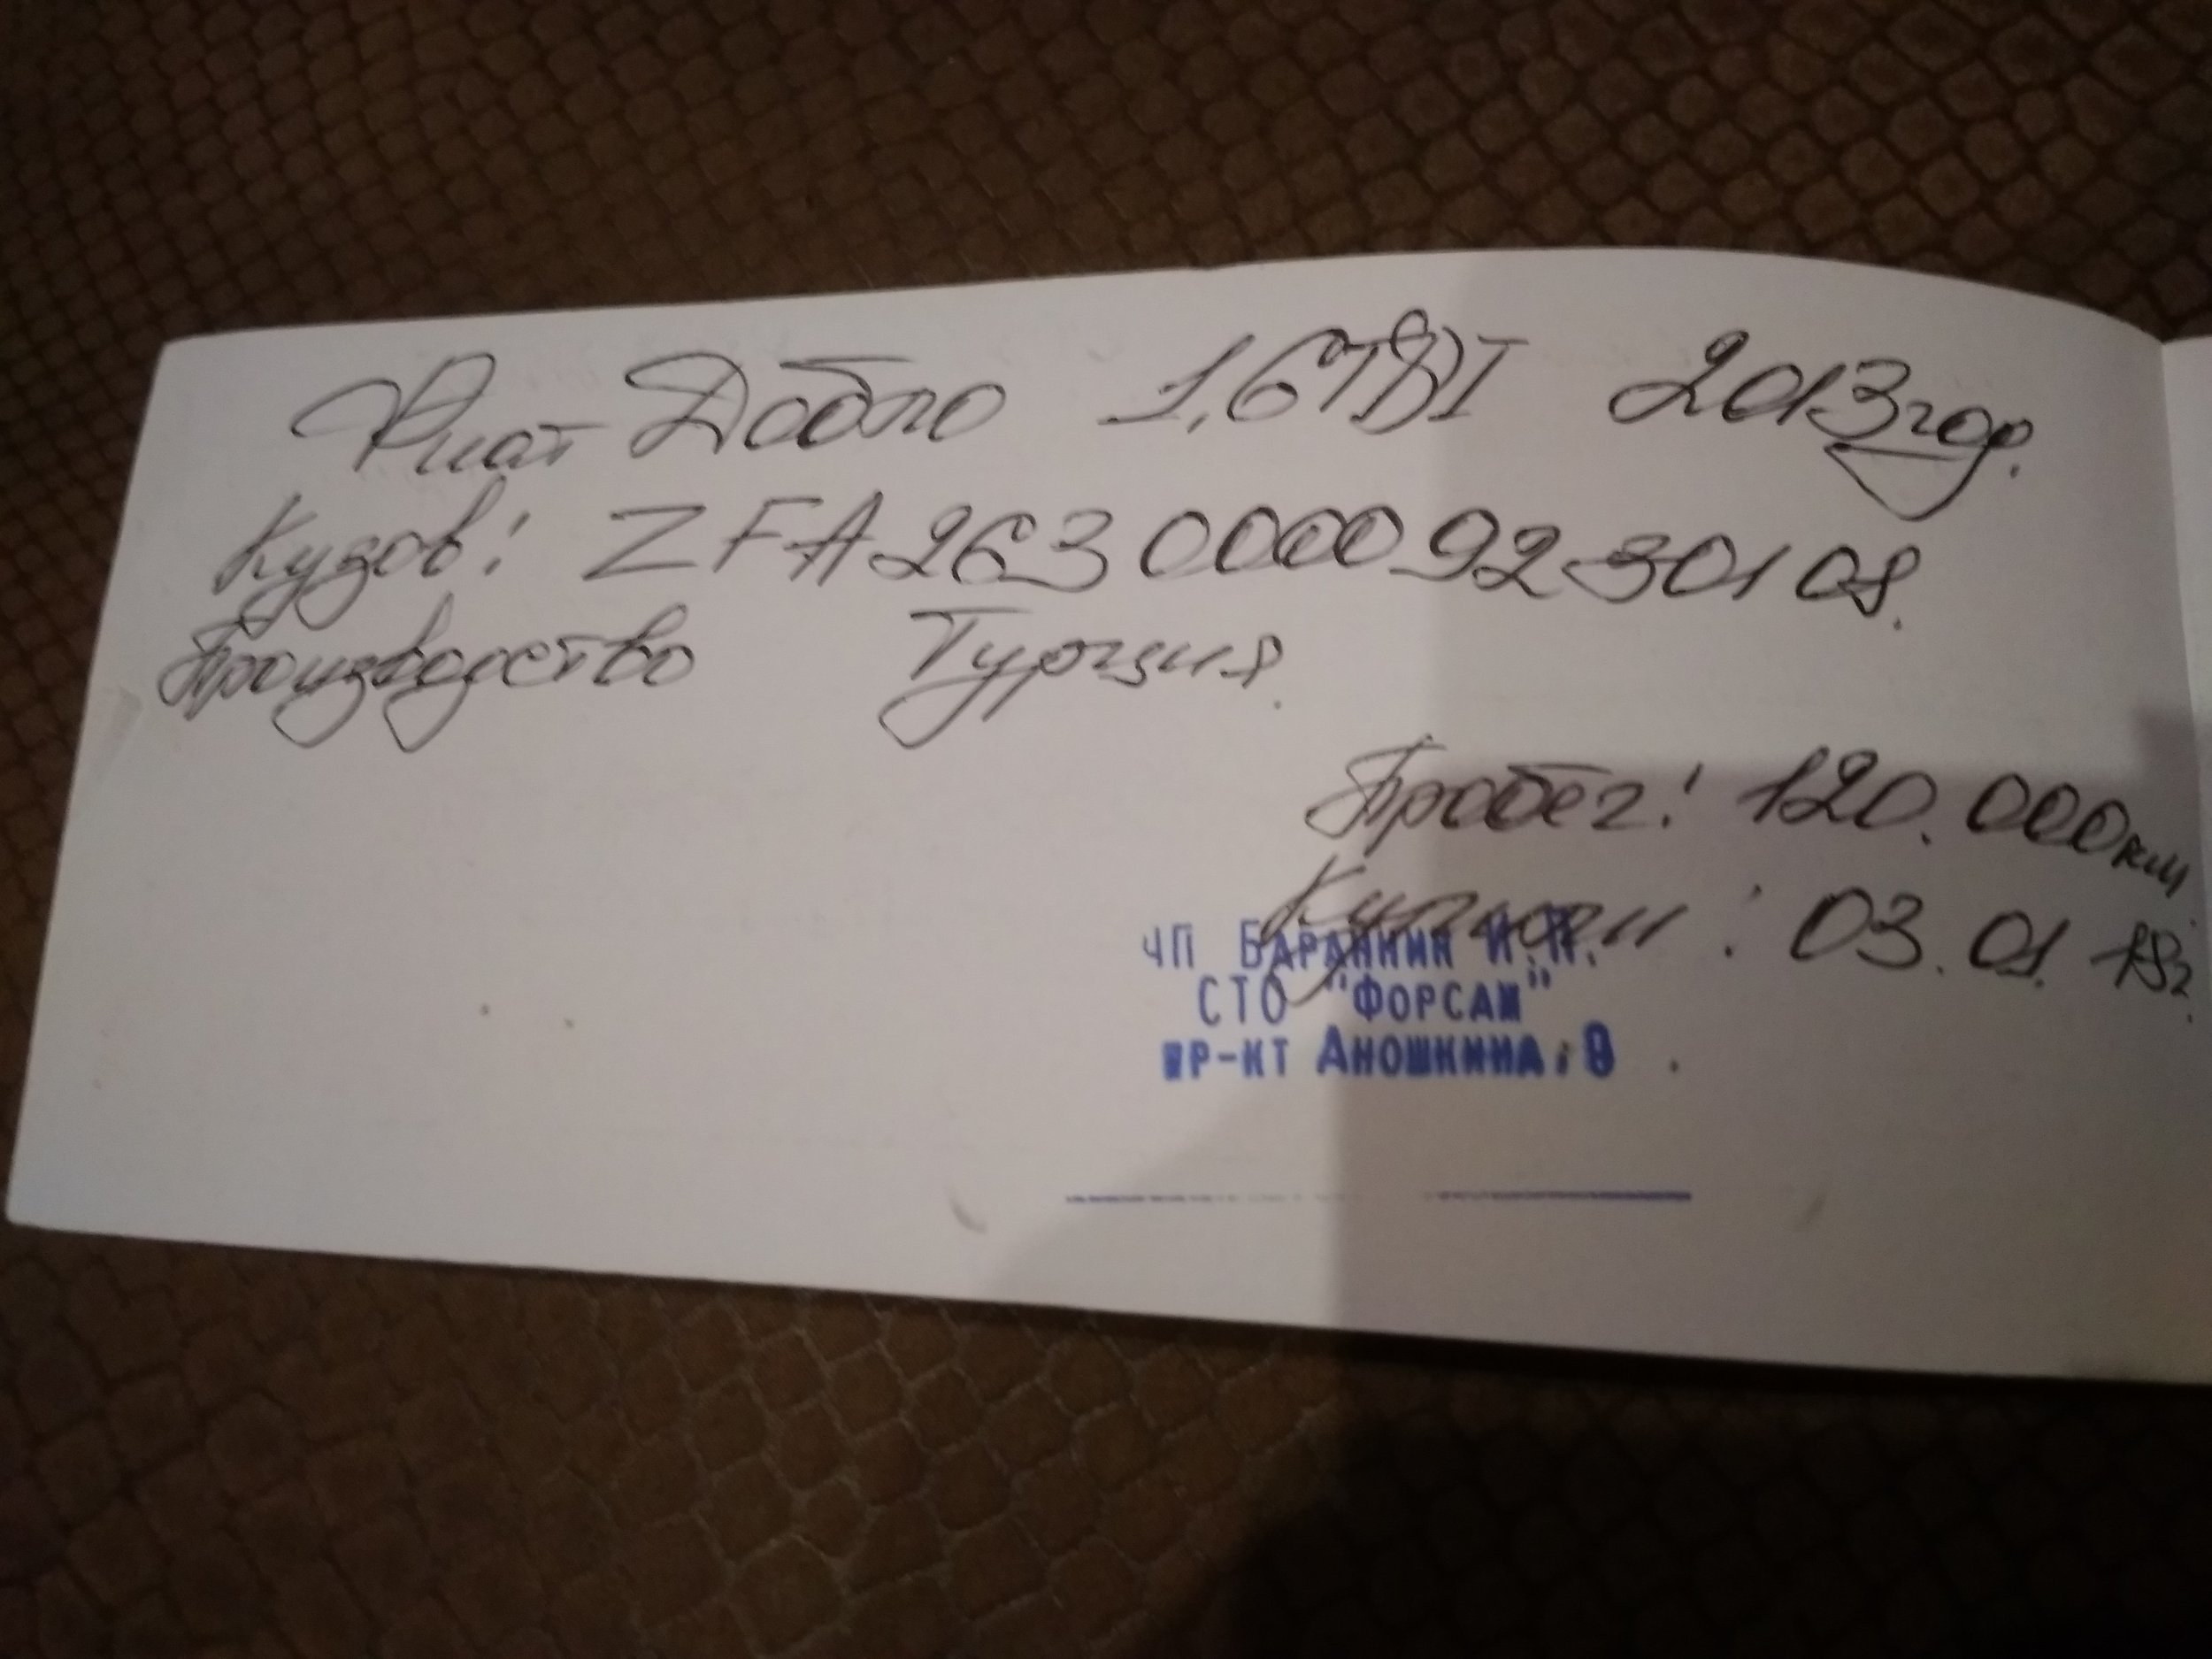 Фиат Добло 1,6TDI 2013год.
Кузов: ZFA263 0000 9230108.
Производство Турция.
Пробег: 120.000км.
Купили: 03.01.18г.
ЧП Баранник И.П.
СТО "Форсаж"
пр-кт Аношкина, 9